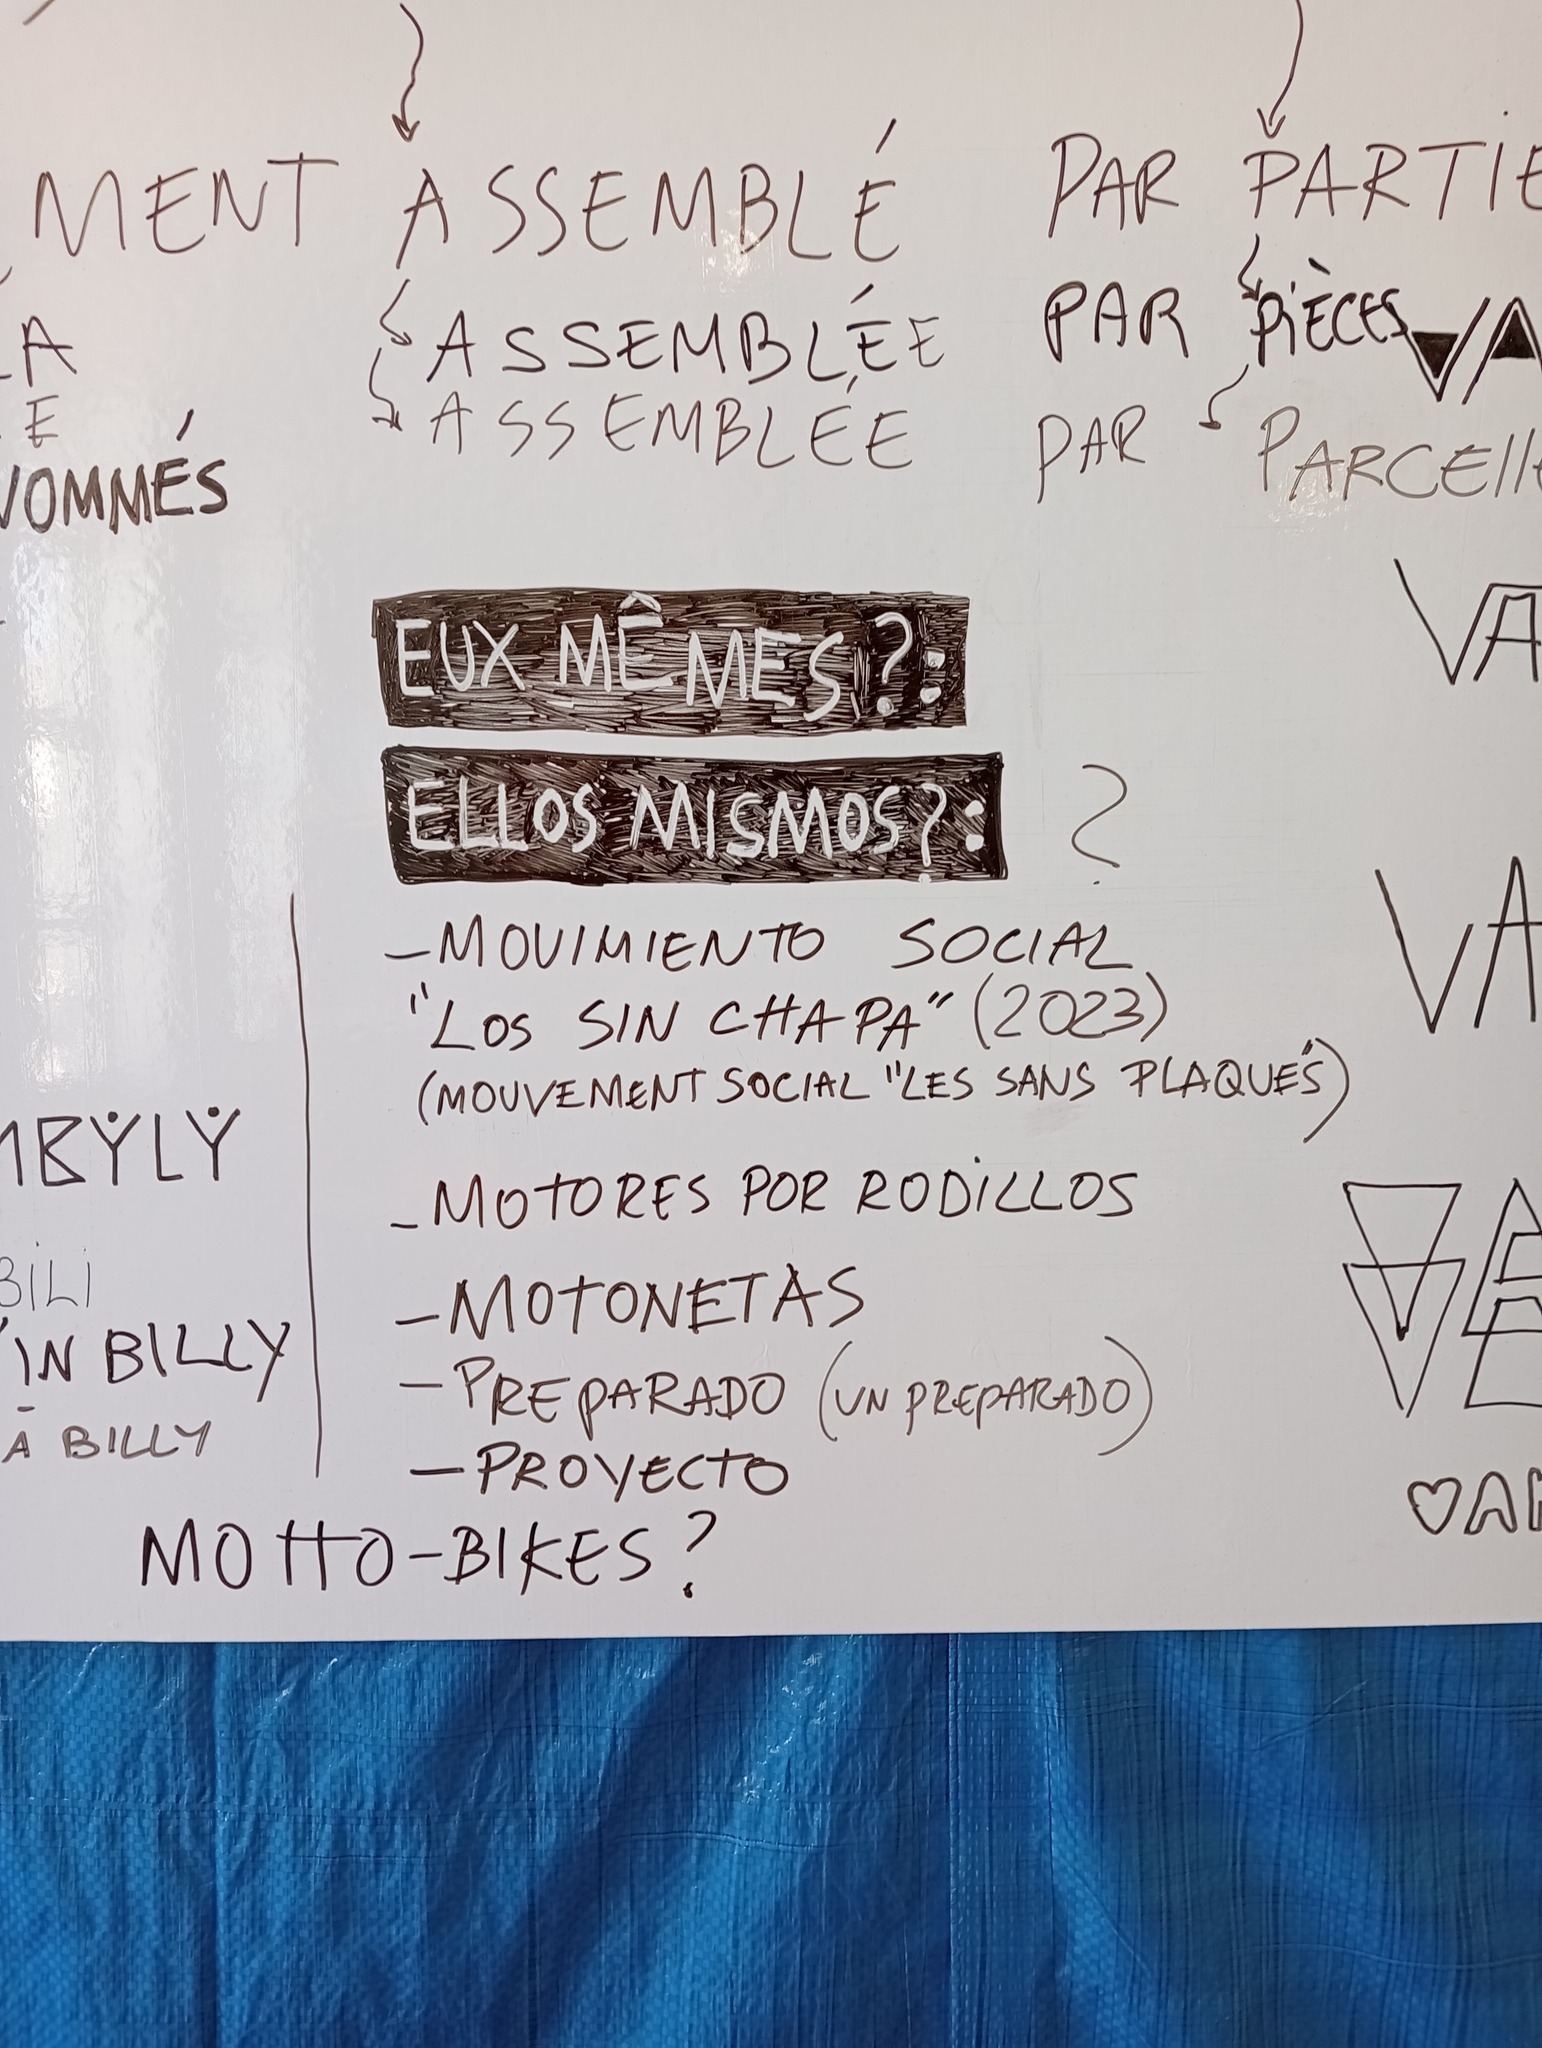 MENT ASSEMBLÉ PAR PARTIE
ASSEMBLÉE PAR PIÈCES
ASSEMBLÉE PAR PARCELLE
VA
EUX MÊMES?:
ELLOS MISMOS?: ?
VA
- MOVIMIENTO SOCIAL
"LOS SIN CHAPA" (2023)
(MOUVEMENT SOCIAL "LES SANS PLAQUÉS")
VA
- MOTORES POR RODILLOS
MBŸLŸ
- MOTONETAS
BILI
IN BILLY
- PREPARADO (UN PREPARADO)
À BILLY
- PROYECTO
MOTTO-BIKES?